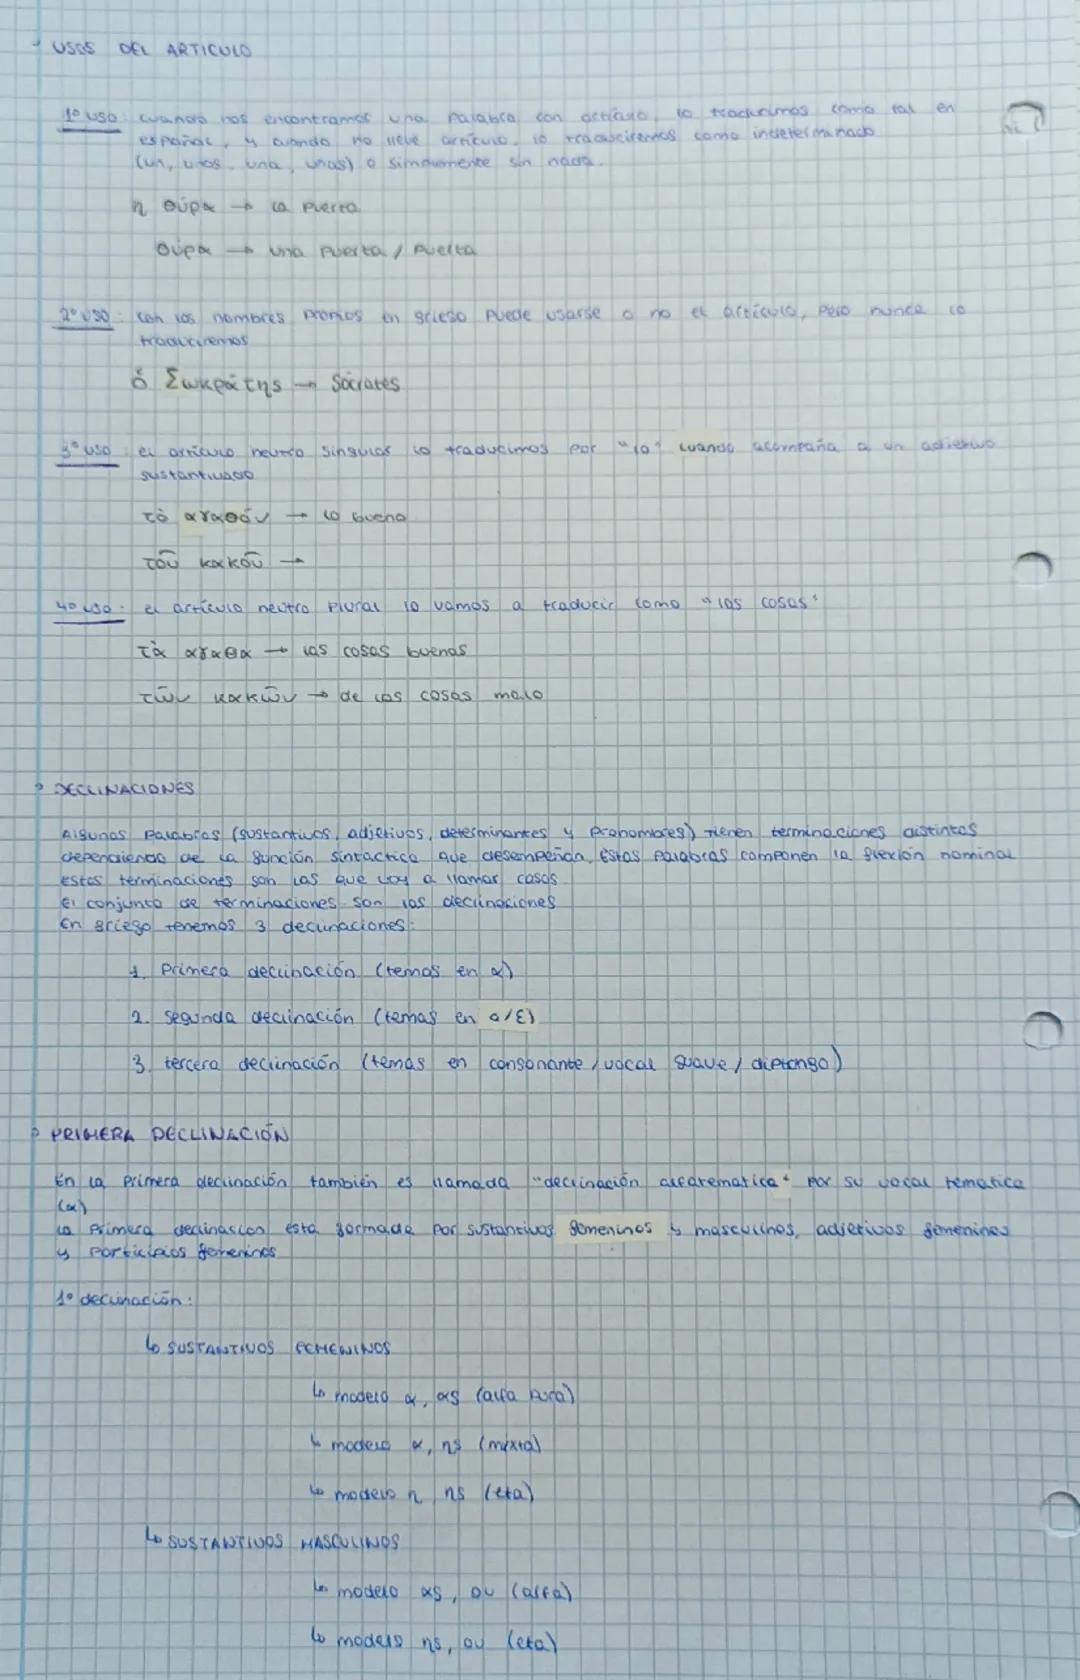 USOS DEL ARTICULO
1º uso: cuando nos encontramos una palabra con artículo, lo traducimos como tal en
español, y cuando no lleve artículo, lo traduciremos como indeterminado
(un, unos, una, unas) o simplemente sin nada.
η θύρα → la puerta
θύρα → una puerta / puerta
2º uso: con los nombres propios en griego puede usarse o no el artículo, pero nunca lo
traduciremos
ὁ Σωκράτης → Sócrates
3º uso: el artículo neutro singular lo traducimos por "lo" cuando acompaña a un adjetivo
sustantivado
τὸ αγαθόν → lo bueno
τοῦ κακοῦ →
4º uso: el artículo neutro plural lo vamos a traducir como "las cosas"
τὰ αγαθα → las cosas buenas
τῶν κακῶν → de las cosas malo
DECLINACIONES
Algunas palabras (sustantivos, adjetivos, determinantes y pronombres) tienen terminaciones distintas
dependiendo de la función sintáctica que desempeñan. Estas palabras componen la flexión nominal
estas terminaciones son las que voy a llamar casos
El conjunto de terminaciones son las declinaciones
En griego tenemos 3 declinaciones:
1. Primera declinación (temas en α)
2. Segunda declinación (temas en o/ε)
3. tercera declinación (temas en consonante / vocal suave / diptongo)
PRIMERA DECLINACIÓN
En la primera declinación también es llamada "declinación alfatematica" por su vocal tematica
(α)
la primera declinación esta formada por sustantivos femeninos y masculinos, adjetivos femeninos
y participios femeninos
1º declinación:
↳ SUSTANTIVOS FEMENINOS
↳ modelo α, ας (alfa pura)
↳ modelo α, ης (mixta)
↳ modelo η, ης (eta)
↳ SUSTANTIVOS MASCULINOS
↳ modelo ας, ου (alfa)
↳ modelo ης, ου (eta)